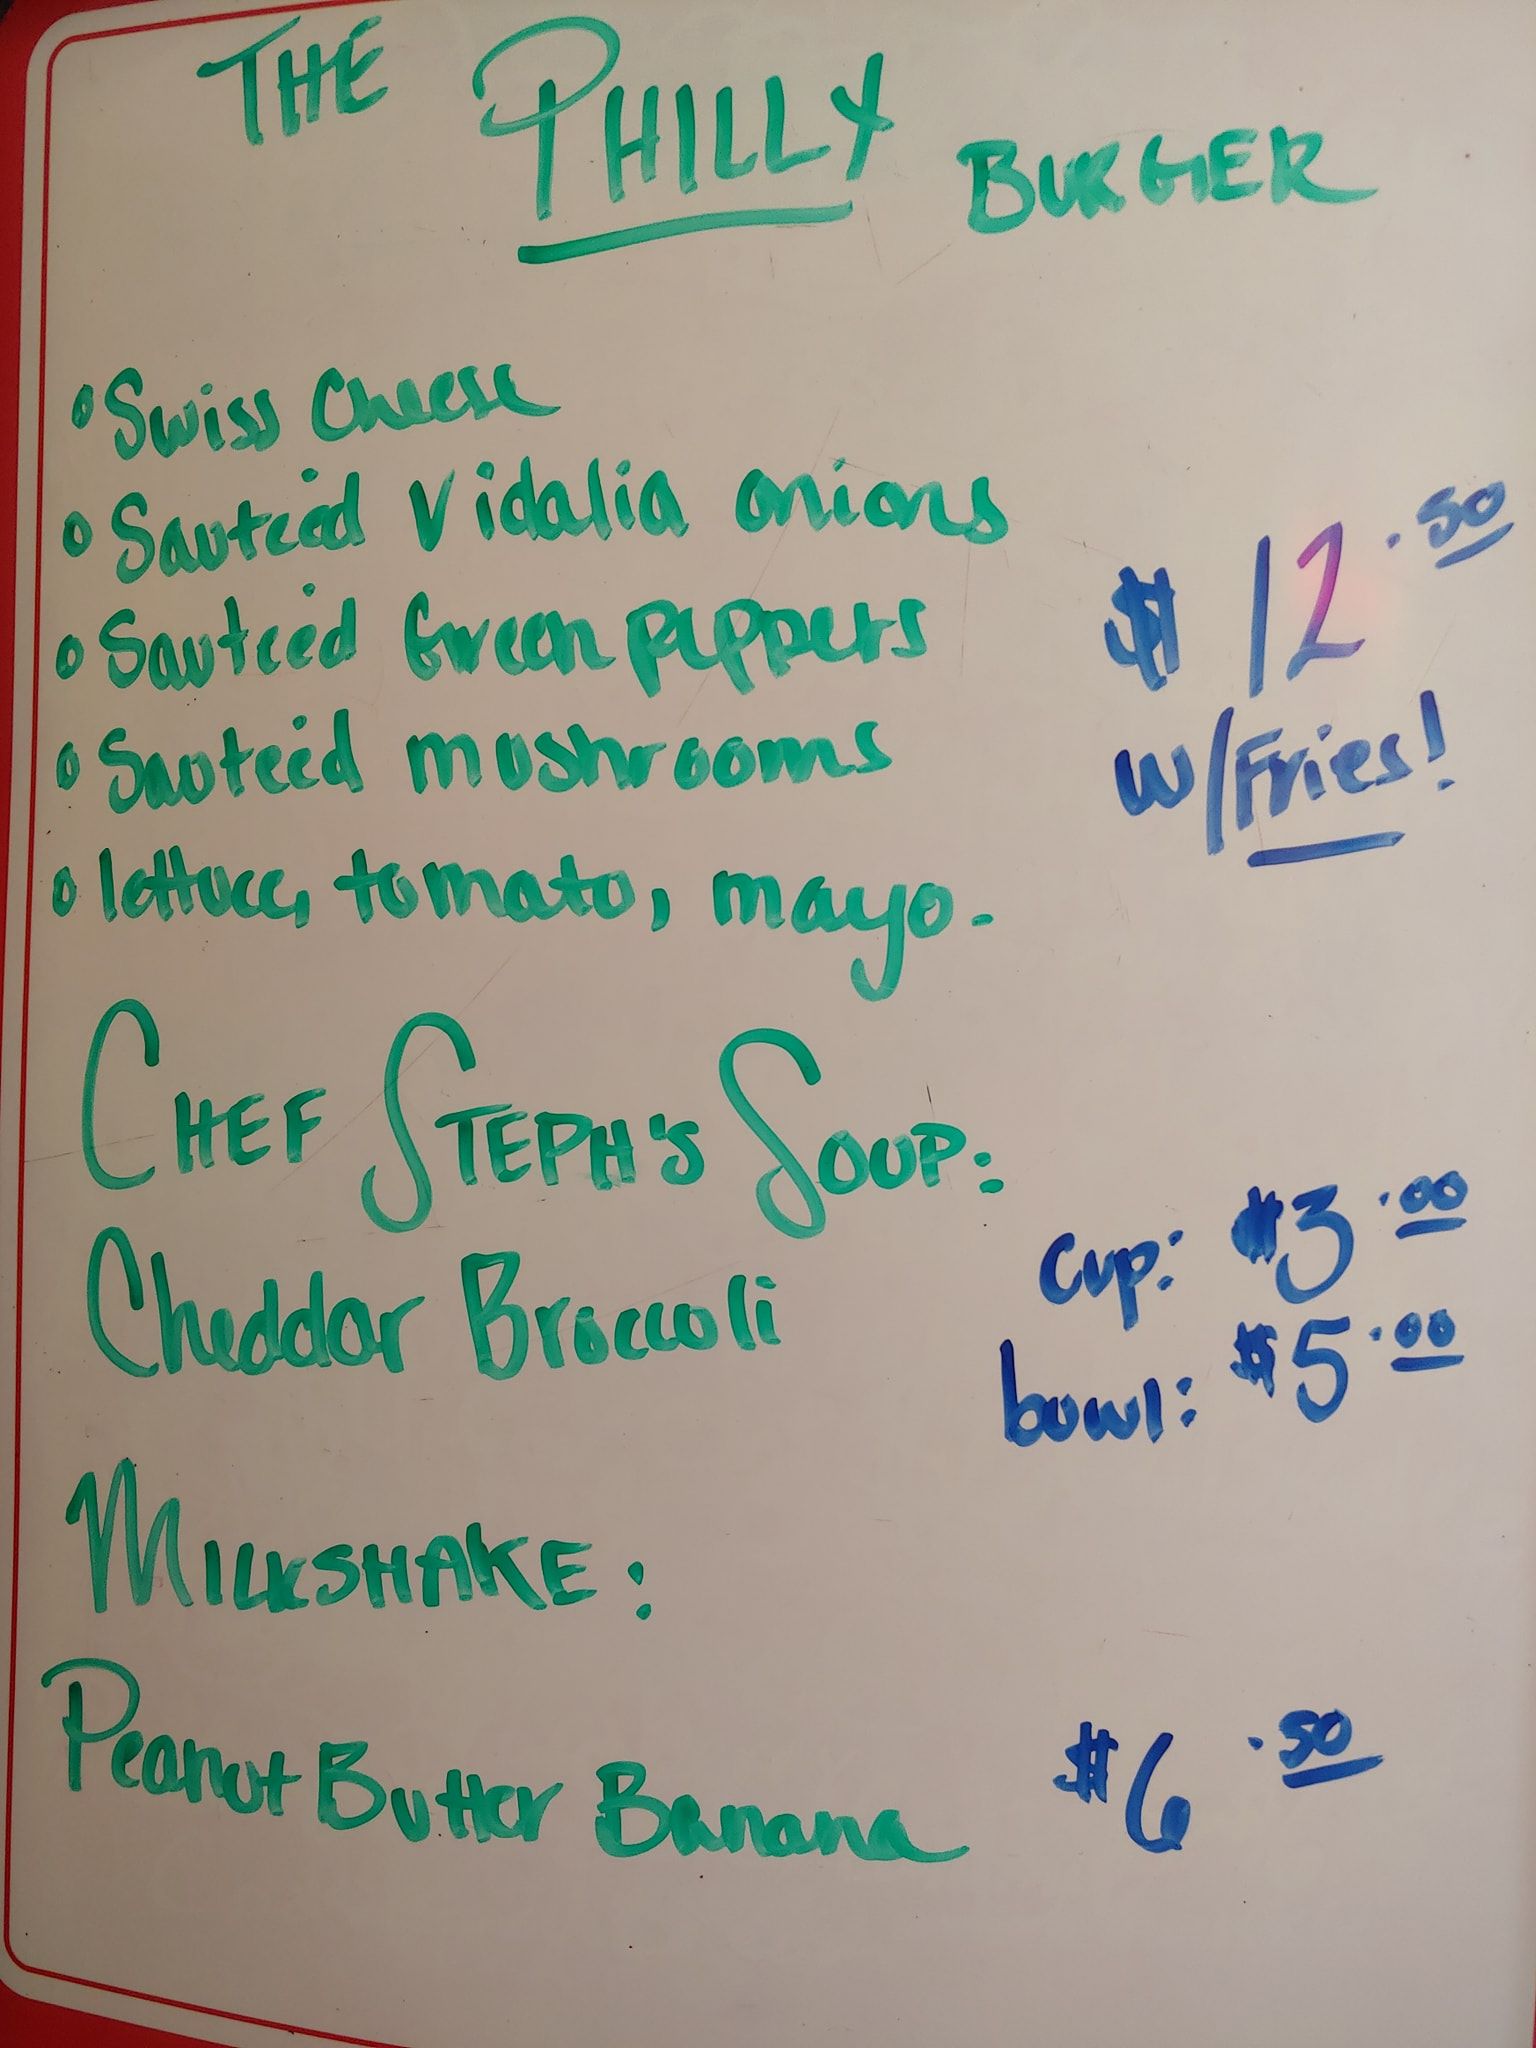 THE PHILLY BURGER
• Swiss Cheese
• Sauteéd Vidalia onions
• Sauteéd Green peppers
• Sauteéd mushrooms
• lettuce, tomato, mayo.
$12.50
w/Fries!
CHEF STEPH'S SOUP:
Cheddar Broccoli
cup: $3.00
bowl: $5.00
MILKSHAKE:
Peanut Butter Banana $6.50